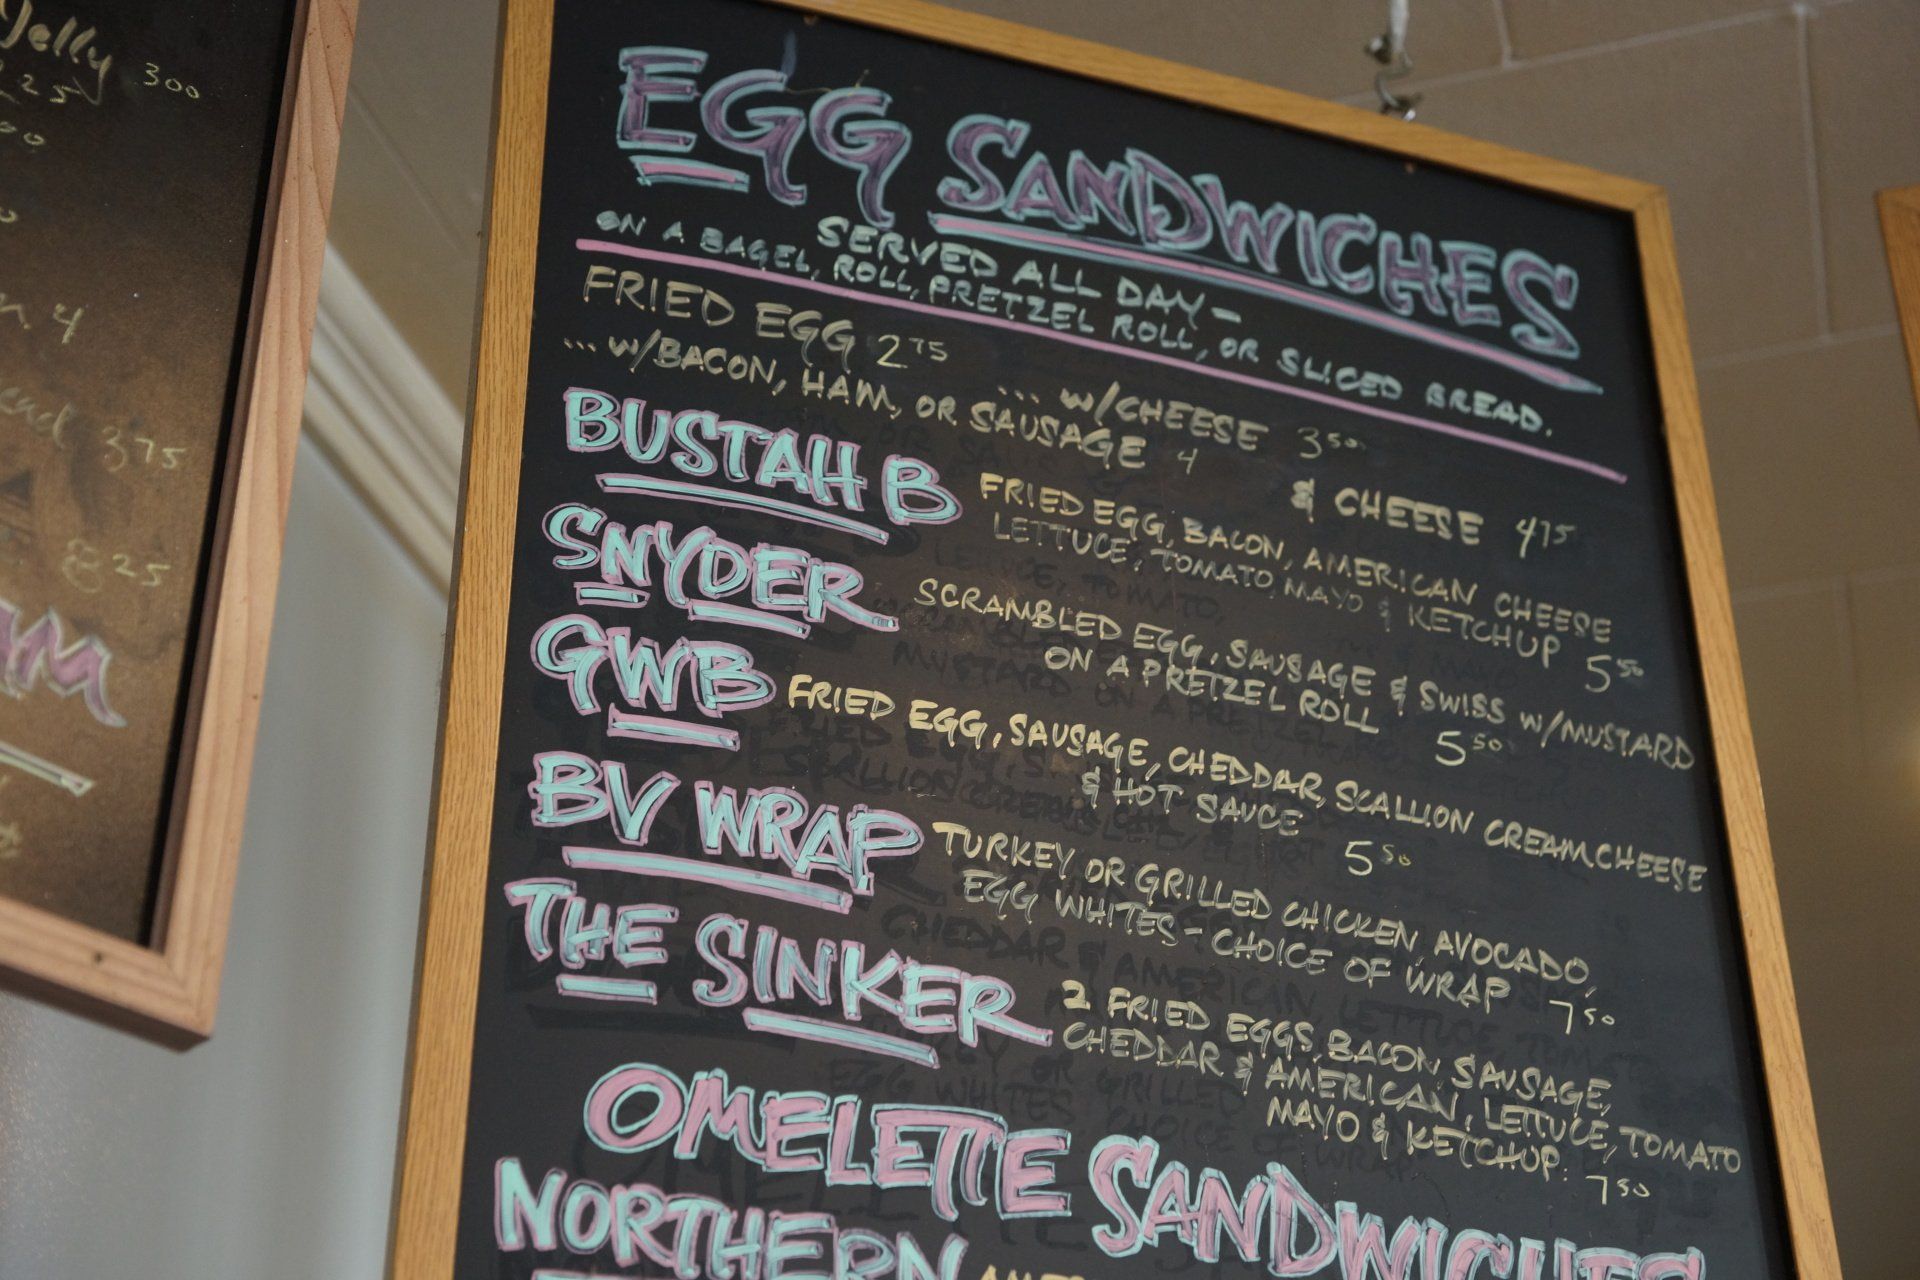 Jelly 300
25
00
4
375
825
EGG SANDWICHES
SERVED ALL DAY-
ON A BAGEL, ROLL, PRETZEL ROLL, OR SLICED BREAD.
FRIED EGG 2 75 ... W/CHEESE 3 50
... W/BACON, HAM, OR SAUSAGE 4 & CHEESE 4 75
BUSTAH B FRIED EGG, BACON, AMERICAN CHEESE
LETTUCE, TOMATO, MAYO & KETCHUP 5 50
SNYDER SCRAMBLED EGG, SAUSAGE & SWISS W/MUSTARD
ON A PRETZEL ROLL 5 50
GWB FRIED EGG, SAUSAGE, CHEDDAR, SCALLION CREAM CHEESE
& HOT SAUCE 5 50
BV WRAP TURKEY OR GRILLED CHICKEN, AVOCADO,
EGG WHITES - CHOICE OF WRAP 7 50
THE SINKER 2 FRIED EGGS, BACON SAUSAGE,
CHEDDAR & AMERICAN, LETTUCE, TOMATO
MAYO & KETCHUP. 7 50
OMELETTE SANDWICHES
NORTHERN